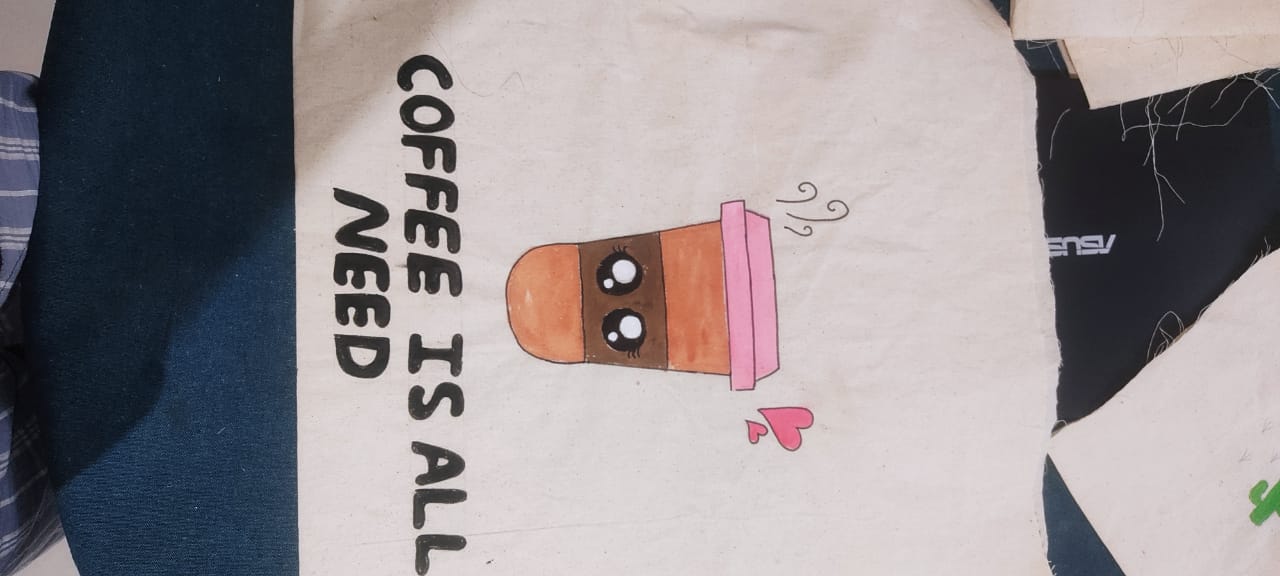 COFFEE IS ALL
NEED
ASUS